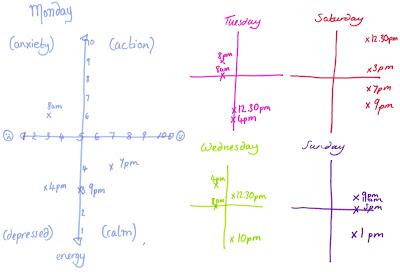 Monday
(anxiety) (action)
10
9
8
7
8am
6
1 2 3 4 5 6 7 8 9 10
4
7pm
x4pm
x9pm
2
1
(depressed) (calm)
energy
Tuesday
8pm
8am
x12.30pm
x4pm
Saturday
x12.30pm
x3pm
x7pm
x9pm
Wednesday
4pm
8am
x12.30pm
x10pm
Sunday
x9pm
x3pm
x1pm